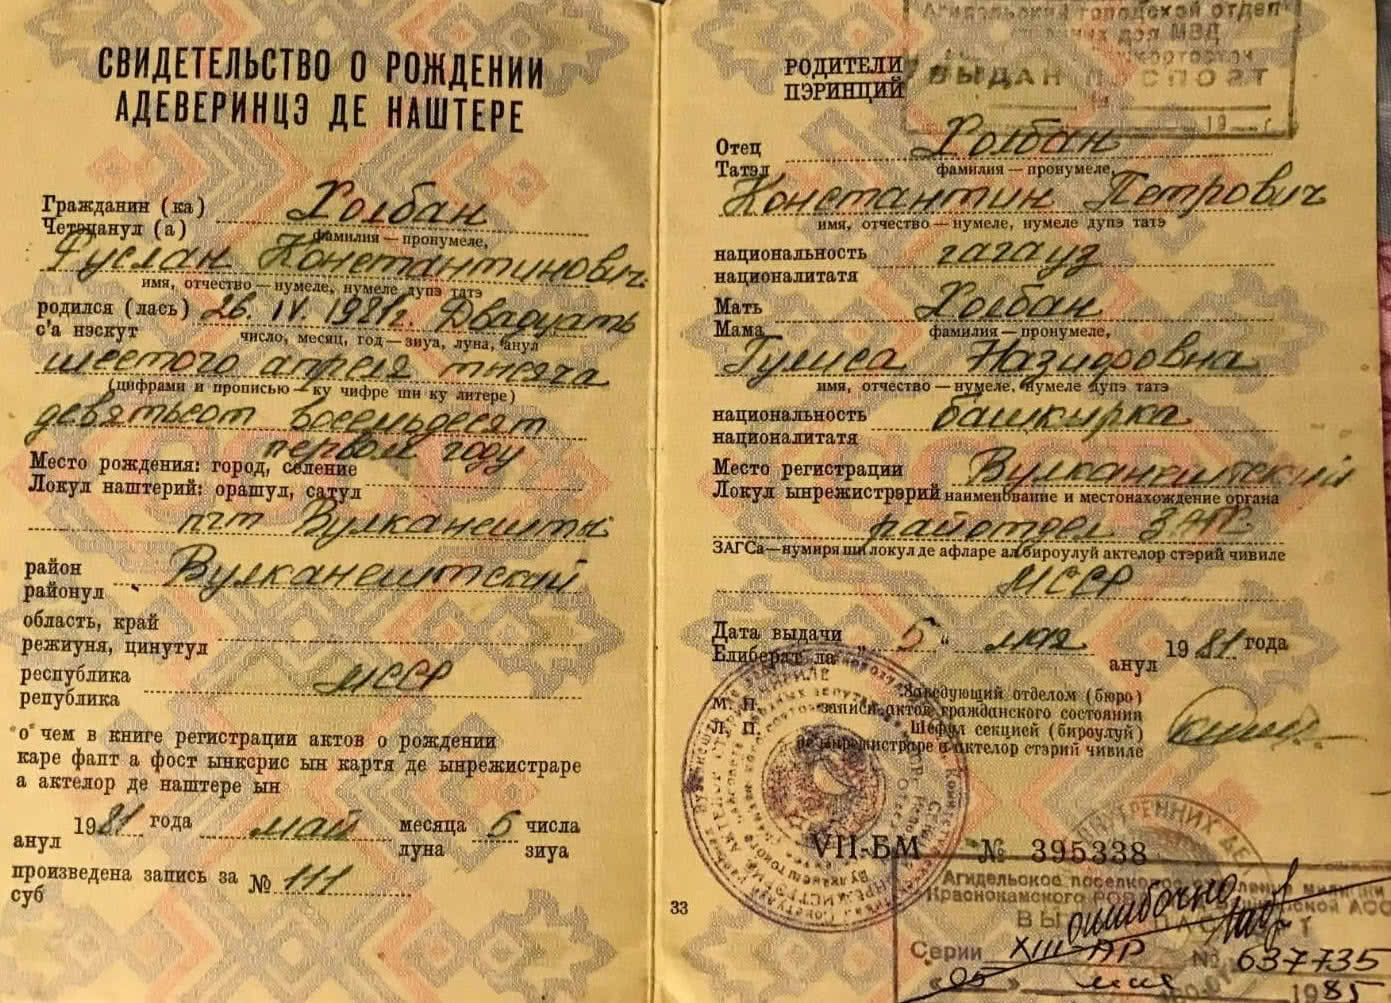 СВИДЕТЕЛЬСТВО О РОЖДЕНИИ
АДЕВЕРИНЦЭ ДЕ НАШТЕРЕ
Гражданин (ка) Холбан
Четэцанул (а)
фамилия — пронумеле,
Руслан Константинович
имя, отчество — нумеле, нумеле дупэ татэ
родился (лась) 26. IV. 1981г. Двадцать
с'а нэскут
число, месяц, год — зиуа, луна, анул
шестого апреля тысяча
(цифрами и прописью — ку чифре ши ку литере)
девятьсот восемьдесят
первом году
Место рождения: город, селение
Локул наштерий: орашул, сатул
пгт Вулканешты
район Вулканештский
районул
область, край
режиуня, цинутул
республика МССР
република
о чем в книге регистрации актов о рождении
каре фапт а фост ынксрис ын картя де ынрежистраре
а актелор де наштере ын
1981 года май месяца 5 числа
анул луна зиуа
произведена запись за № 111
суб
РОДИТЕЛИ
ПЭРИНЦИЙ
Агидельский городской отдел
МВД
ВЫДАН ПАСПОРТ
19 г.
Отец Холбан
Татэл
фамилия — пронумеле,
Константин Петрович
имя, отчество — нумеле, нумеле дупэ татэ
национальность гагауз
националитатя
Мать Холбан
Мама
фамилия — пронумеле,
Гулиса Назифовна
имя, отчество — нумеле, нумеле дупэ татэ
национальность башкирка
националитатя
Место регистрации Вулканештский
Локул ынрежистрэрий наименование и местонахождение органа
райотдел ЗАГС
ЗАГСа — нумиря ши локул де афларе ал бироулуй актелор стэрий чивиле
МССР
Дата выдачи „5“ мая 1981 года
Елиберат ла анул
М. П. Заведующий отделом (бюро)
записи актов гражданского состояния
Л. П. Шефул секцией (бироулуй)
де ынрежистраре а актелор стэрий чивиле
VII-БМ № 395338
ВНУТРЕННИХ ДЕ
Агидельское поселковое отделение милиции
Краснокамского РОВД
ошибочно
Серии XIII АР № 637735
„05“ мая 1985
33